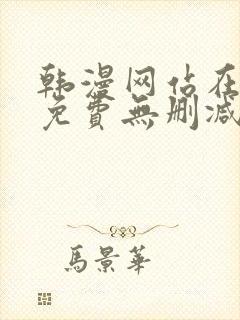 韩漫网站在
免費無删减
馬景華